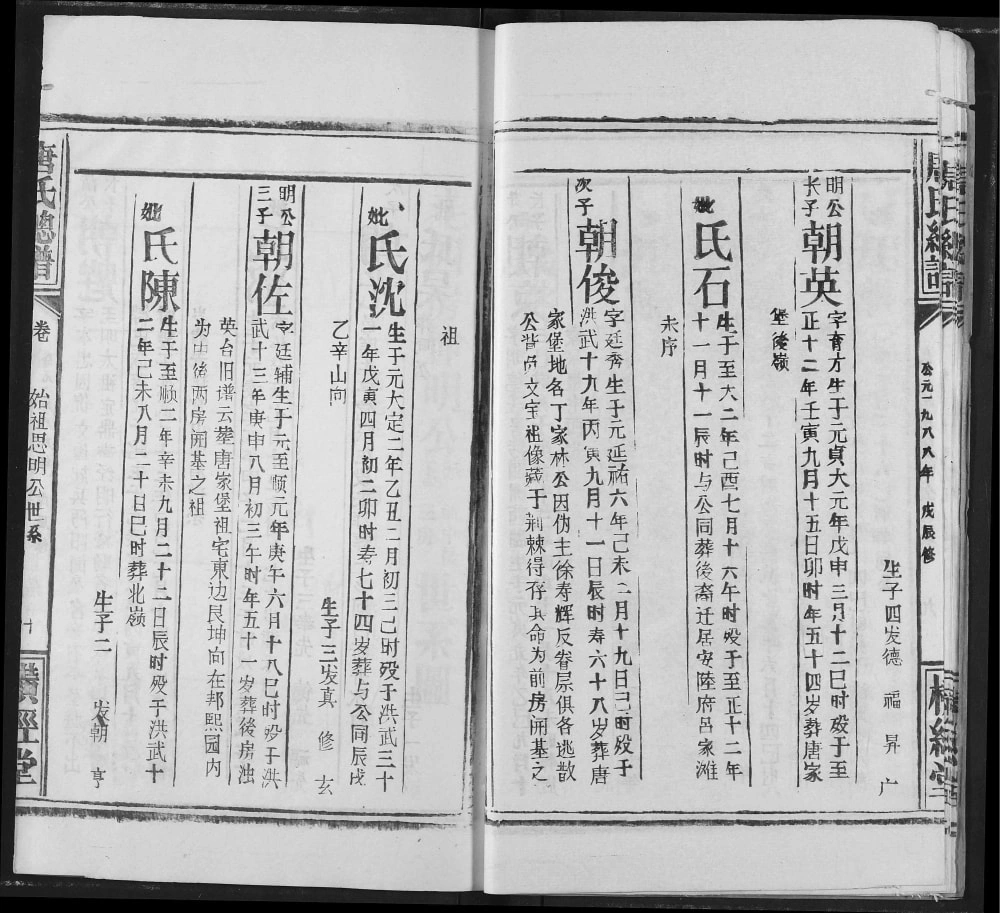 唐氏總譜
公元一九八八年 戊辰修
生子四发德 福 昇 广
明公长子
朝英
字育方生于元貞大元年戊申三月十二巳时殁于至
正十二年壬寅九月十五日卯时年五十四岁葬唐家
堡後嶺
妣
氏石
生于至大二年己酉七月十六午时殁于至正十二年
十一月十一辰时与公同葬後裔迁居安陸府吕家滩
未序
次子
朝俊
字廷秀生于元延祐六年己未二月十九日巳时殁于
洪武十九年丙寅九月十一日辰时寿六十八岁葬唐
家堡地名丁家林公因伪主徐寿辉反眷屋俱各逃散
公背负文宝祖像藏于荆棘得存其命为前房開基之
祖
妣
氏沈
生于元大定二年乙丑二月初三己时殁于洪武三十
一年戊寅四月初二卯时寿七十四岁葬与公同辰戌
乙辛山向
生子三发真 修 玄
明公三子
朝佐
字廷辅生于元至顺元年庚午六月十八巳时殁于洪
武十三年庚申八月初三午时年五十一岁葬後房浊
英台旧谱云葬唐家堡祖宅東边艮坤向在邦熙园内
为中後两房開基之祖
妣
氏陳
生于至顺二年辛未九月二十二日辰时殁于洪武十
二年己未八月二十日巳时葬北嶺
生子二 发朝 亨
唐氏總譜
卷
始祖思明公世系
十
經堂